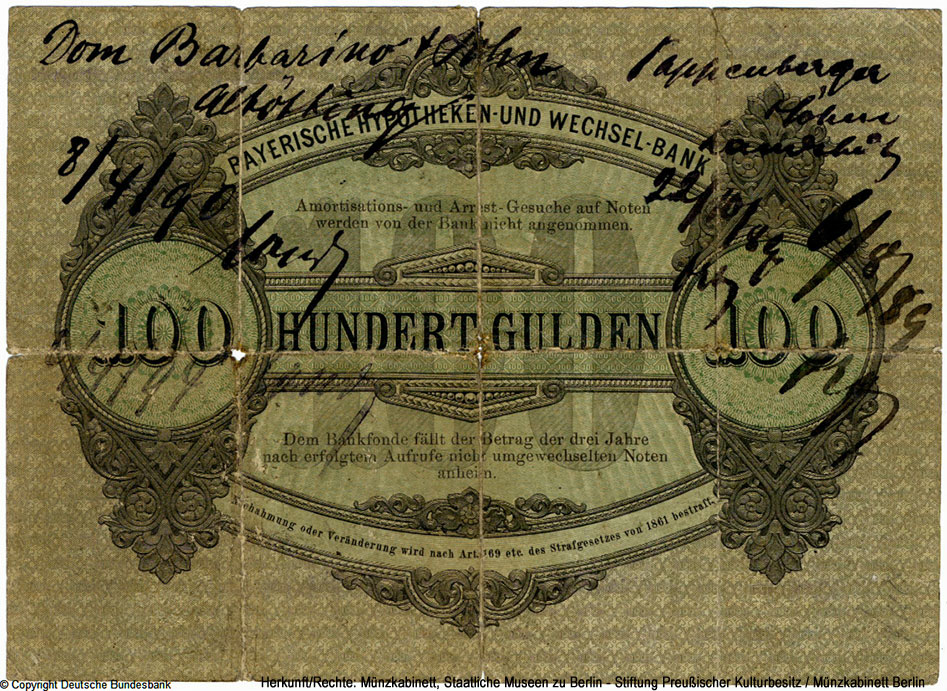 Dom Barbarino & Sohn
Altötting
8/4/90
Pappenberger
Söhne
22/10/89
6/8/89
BAYERISCHE HYPOTHEKEN-UND WECHSEL-BANK
Amortisations- und Arrest-Gesuche auf Noten
werden von der Bank nicht angenommen.
100 HUNDERT GULDEN 100
Dem Bankfonde fällt der Betrag der drei Jahre
nach erfolgtem Aufrufe nicht umgewechselten Noten
anheim.
Nachahmung oder Veränderung wird nach Art. 169 etc. des Strafgesetzes von 1861 bestraft.
© Copyright Deutsche Bundesbank
Herkunft/Rechte: Münzkabinett, Staatliche Museen zu Berlin - Stiftung Preußischer Kulturbesitz / Münzkabinett Berlin